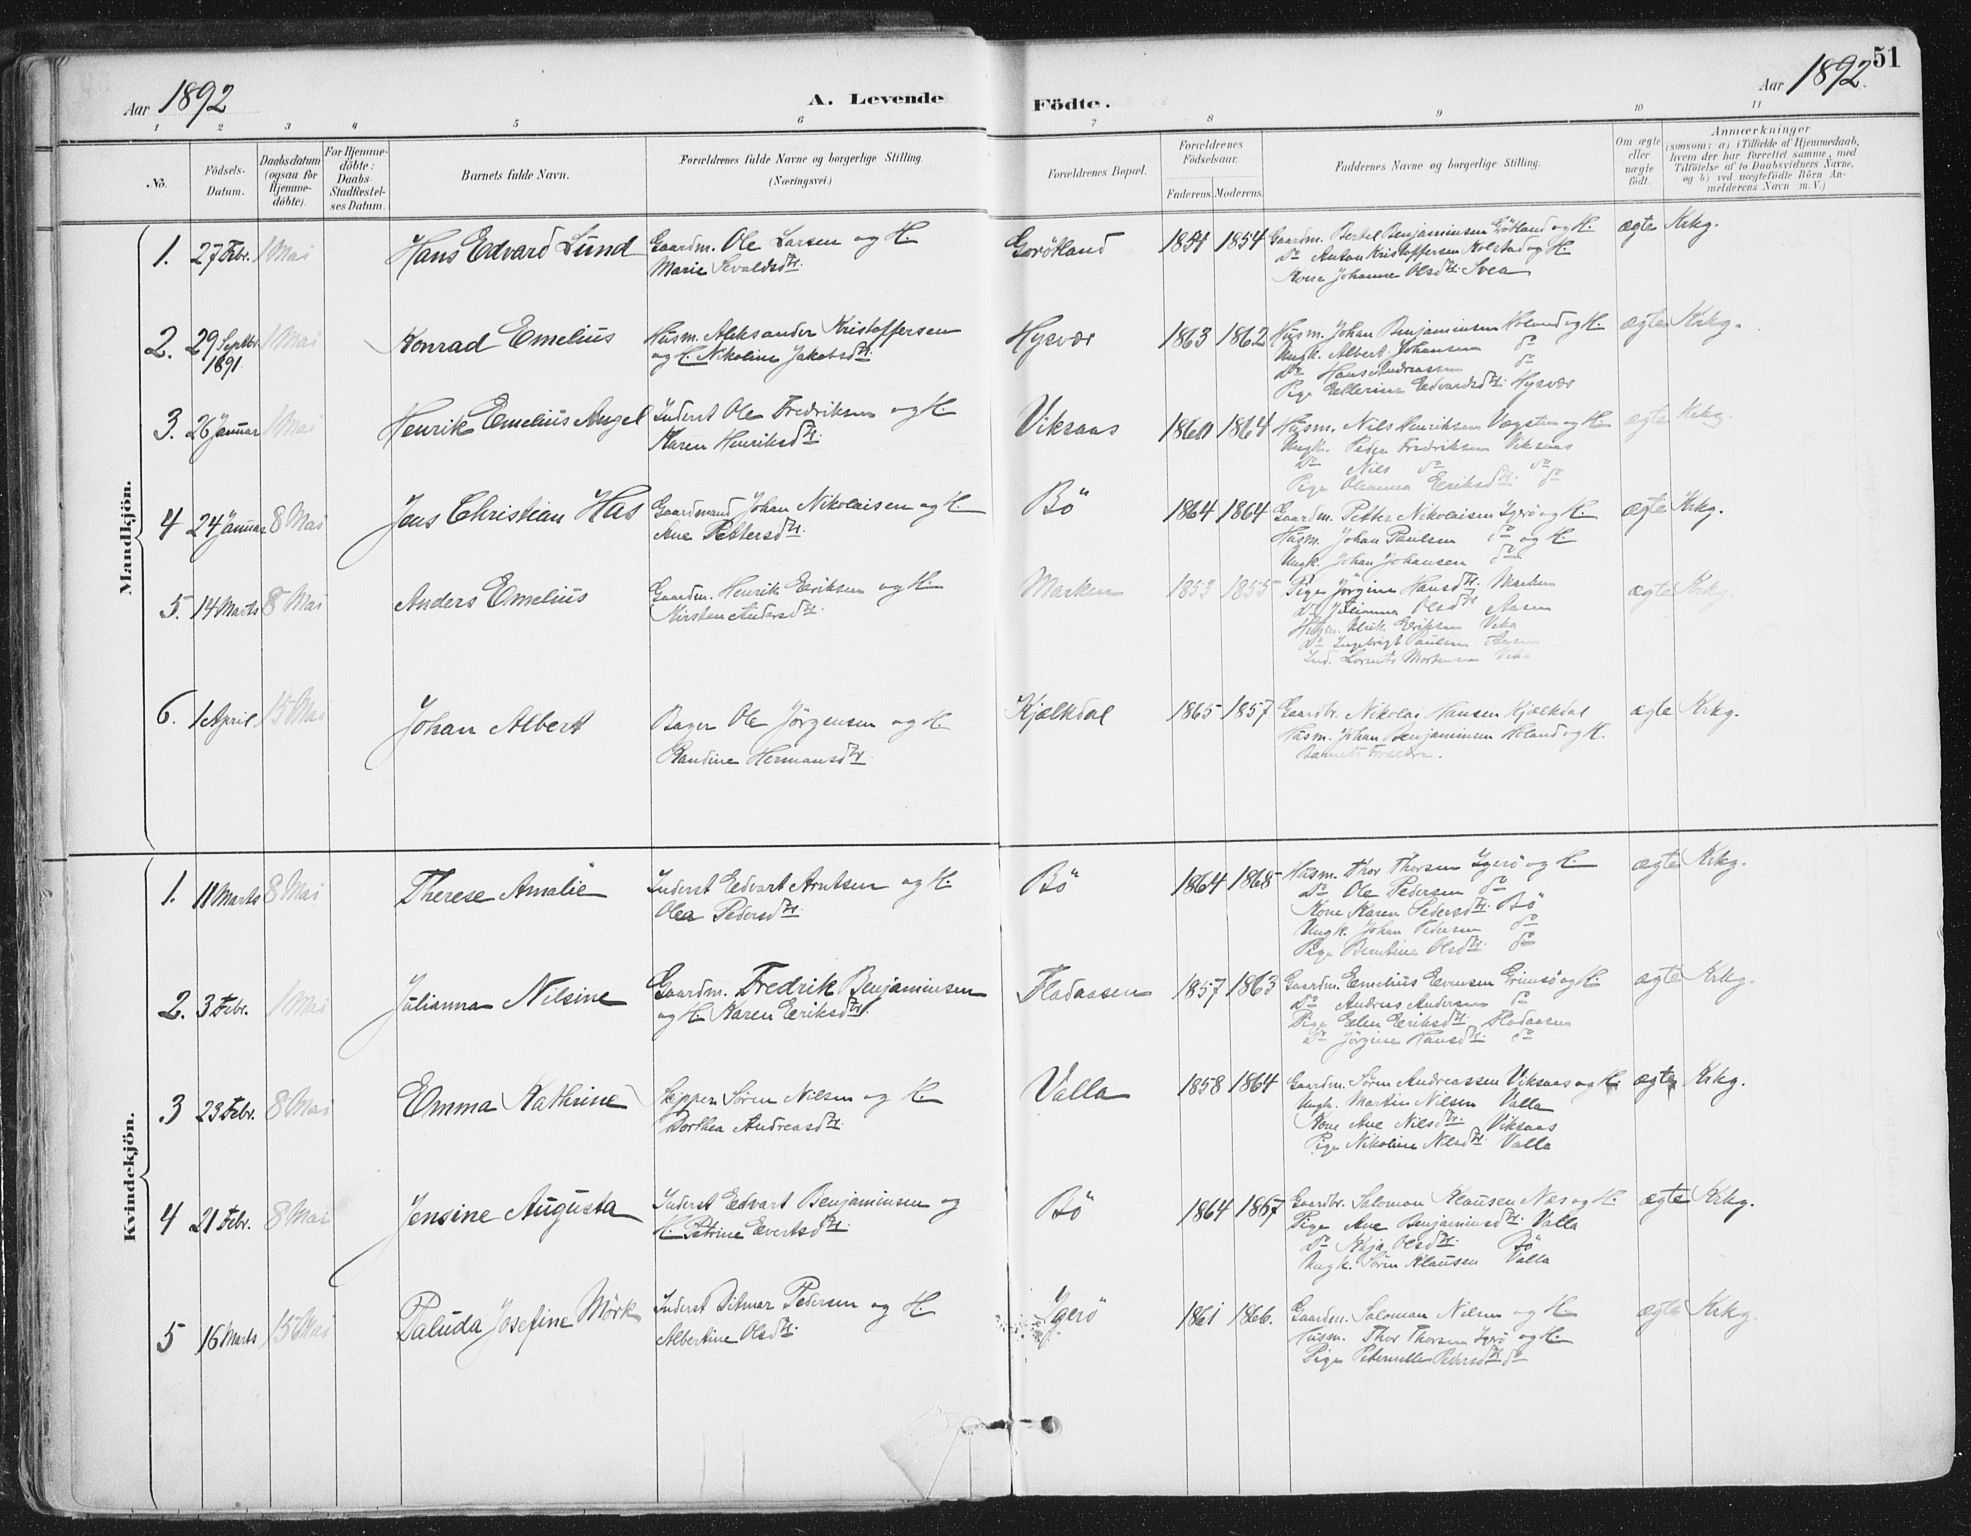 51
Aar 1892
A. Levende Födte.
Aar 1892.
1 2 3 4 5 6 7 8 9 10 11
No. Födsels-Datum. Daabsdatum (ogsaa för Hjemmedöbte). For Hjemmedöbte: Daabs-Stadfæstelses Datum. Barnets fulde Navn. Forældrenes fulde Navne og borgerlige Stilling. (Næringsvei.) Forældrenes Bopæl. Forældrenes Födselsaar. Faderens Moderens. Faddernes Navne og borgerlige Stilling. Om ægte eller uægte födt. Anmærkninger (saasom: a) i Tilfælde af Hjemmedaab, hvem der har forrettet samme, med Tilföielse af to Daabsvidners Navne, og b) ved uægtefödte Börn Anmelderens Navn m. V.)
Mandkjön.
1. 27 Febr. 1 Mai Hans Edvard Lund Gaardm. Ole Larsen og H. Marie Sevaldsdtr. Grötland 1854 1854 Gaardm. Bertel Benjaminsen Grötland og H. ægte Krkg.
Do Anton Kristoffersen Kolstad og H.
Kone Johanne Olsdtr. Svea
2. 29 Septbr. 1891 1 Mai Konrad Emelius Husm. Aleksander Kristoffersen og H. Nikoline Jakobsdtr. Hysvær 1863 1862 Husm. Johan Benjaminsen Holand og H. ægte Krkg.
Ungk. Albert Johansen do
Do Hans Andreassen do
Pige Ellerine Edvardsdtr. Hysvær
3. 26 Januar 1 Mai Henrik Emelius Angel Inderst Ole Fredriksen og H. Karen Henriksdtr. Viksaas 1860 1864 Husm. Nils Henriksen Vægsten og H. ægte Krkg.
Ungk. Peder Fredriksen Viksaas
Do Nils do do
Pige Oleanna Eriksdtr. do
4 24 Januar 8 Mai Jens Christian Has Gaardmand Johan Nikolaisen og H. Ane Pettersdtr. Bö 1864 1864 Gaardm. Petter Nikolaisen Igerö og H. ægte Krkg.
Husm. Johan Paulsen do og H.
Ungk. Johan Johansen do
5. 14 Marts 8 Mai Anders Emelius Gaardm. Henrik Eriksen og H. Kirsten Andersdtr. Marken 1853 1855 Pige Jörgine Hansdtr. Marken ægte Krkg.
Do Julianna Olsdtr Aasen
Ulrik Eriksen Vika
Do Ingebrigt Paulsen Aasen
Ind. Lorents Mortensen Vika
6. 1 April 15 Mai Johan Albert Bager Ole Jörgensen og H. Hermansdtr. Kjælkdal 1865 1857 Gaardbr. Nikolai Hansen Kjælkdal ægte Krkg.
Husm. Johan Benjaminsen Holand og H.
Barnets Forældre.
Kvindekjön.
1. 11 Marts 8 Mai Therese Amalie Inderst Edvart Arntsen og H. Olea Pedersdtr. Bö 1864 1868 Husm. Thor Thorsen Igerö og H. ægte Krkg.
Do Ole Pedersen do
Kone Karen Pedersdtr. Bö
Ungk. Johan Pedersen do
Pige Berntine Olsdtr. do
2. 3 Febr. 1 Mai Julianna Nilsine Gaardm. Fredrik Benjaminsen og H. Karen Eriksdtr. Fladaasen 1857 1863 Gaardm. Emelius Evensen Grimsö og H. ægte Krkg.
Do Andreas Andersen do
Pige Elen Eriksdtr. Fladaasen
Do Jörgine Hansdtr. do
3 23 Febr. 8 Mai Emma Kathrine Skipper Sören Nilsen og H. Dorthea Andreasdtr. Valla 1858 1864 Gaardm. Sören Andreassen Viksaas og H. ægte Krkg.
Ungk. Martin Nilsen Valla
Kone Ane Nilsdtr. Viksaas
Pige Nikoline Nilsdtr. Valla
4 21 Febr. 8 Mai Jensine Augusta Inderst Edvart Benjaminsen og H. Petrine Evertsdtr. Bö 1864 1867 Gaardbr. Saloman Klausen Næs og H. ægte Krkg.
Pige Ane Benjaminsdtr. Valla
Do Maja Olsdtr. Bö
Ungk. Sören Klausen Valla
5 16 Marts 15 Mai Paluda Josefine Mörk Inderst Ditmar Pedersen og H. Albertine Olsdtr. Igerö 1861 1866. Gaardm. Saloman Nilsen og H. ægte Krkg.
Husm. Thor Thorsen Igerö og H.
Pige Peternille Pedersdtr do